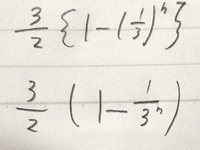 3/2 {1-(1/3)^n}
3/2 (1-1/3^n)